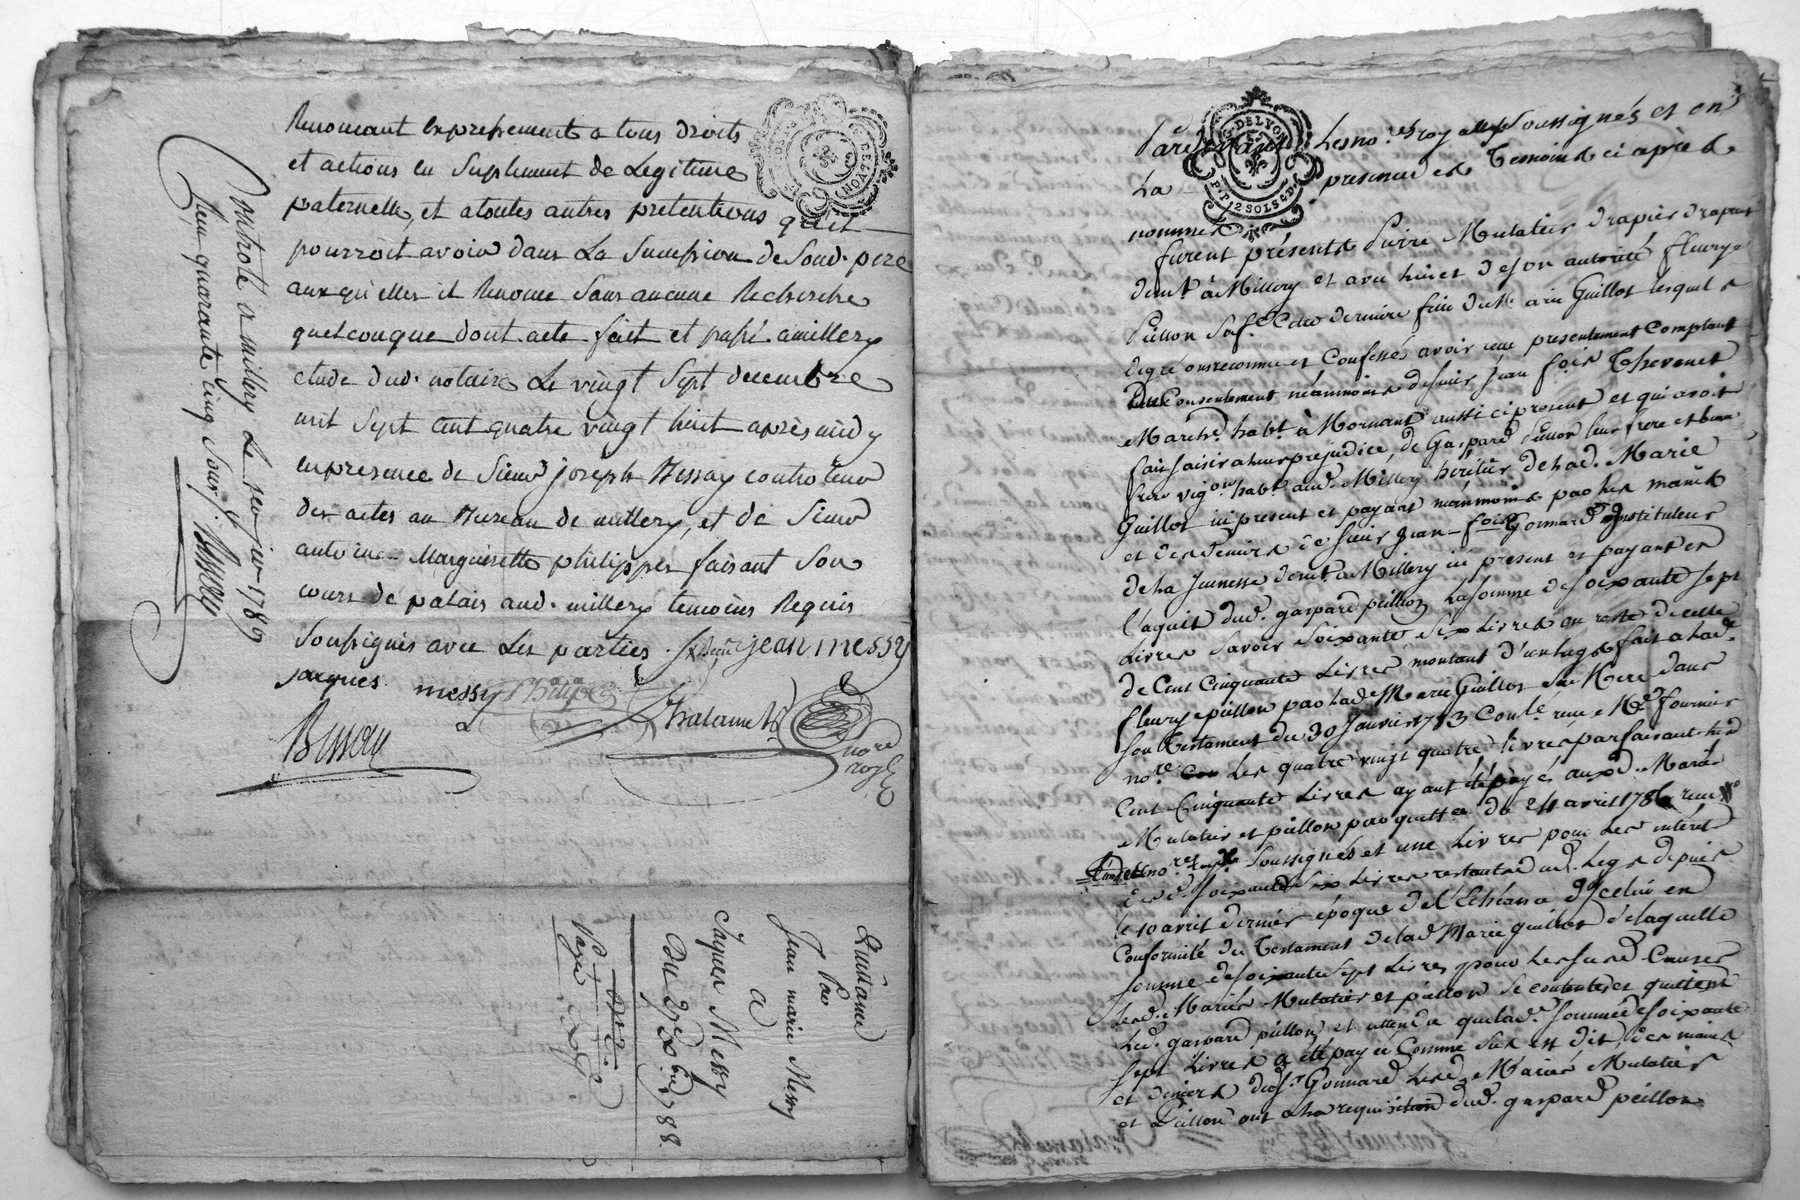 Renoncant expressement a tous droits
et actions en Suplement de Legitime
paternelle, et atoutes autres pretentions qu'il
pourroit avoir dans La Succession de Soud. pere
auxqu'elles il Renonce Sans aucune Recherche
quelconque dont acte fait et passé amillery
etude dud. notaire Le vingt Sept decembre
mil Sept cent quatre vingt huit après midy
enpresence de Sieur joseph Bessay controleur
des actes au Bureau de millery, et de Sieur
antoine Margueritte philippes faisant Son
cours de palais aud. millery temoins Requis
Soussignés avec Les parties. jean messy
jacques messy
Bessay
nore
royl
Controlé a millery Le 1er jer 1789
Reçu quarante cinq Sous. Bessay
Quittance
Par
Jean marie Messy
a
Jaques Messy
Du 27 Xbre 1788
G. DE LYON
P.P. 12 SOLS 4 D.
Pardevant Lesno.res royaux Soussignés et en
La presence des Temoins ci après
nommés
furent présents Pierre Mulatier drapier drapant
demt. à Millery et avec lui et deson autorité fleurye
Pillon Safe. Lad. derniere fille de Marie Guillot lesquels
degré ontreconnu et Confessés avoir reçu presentement Comptant
du Consentement néanmoins desieur jean fois Thevenet
Marchd. habt. à Mornant aussi ci present et qui avoit
fait saisir aleurprejudice, de Gaspard Pillon leur frere et beau
frere vigon. habt. aud. Millery héritier delad. Marie
Guillot ici present et payant néanmoins par les mains
et des deniers de sieur jean-fois Gonnard Instituteur
de la Jeunesse demt. à Millery ici present et payant en
l'aquit dud. gaspard peillon La Somme de Soixante sept
Livres Savoir Soixante six Livres en reste de celle
de Cent Cinquante Livres montant d'un legs fait a lad.
fleurye peillon par lad. Marie Guillot sa Mere dans
Son Testament du 30 Janvier 1783 Conlé. reçu Me. fournier
nore. Les quatre vingt quatre livres parfaisant lesd.
Cent Cinquante Livres ayant été payés auxd. Mariés
Mulatier et peillon par quittce. du 24 avril 1786 reçue
Lundesno.res Soussignés et une Livres pour Les intérets
desd. Soixante six Livres restantes dud. Legs depuis
le 10 avril dernier époque de l'Echéance d'Icelui en
Conformité du Testament delad. Marie guillot delaquelle
Somme de Soixante Sept Livres pour Les Susd. Causes
lesd. Mariés Mulatier et peillon Se contentent et quittent
Led. gaspard peillon, et attendu que lad. Somme de Soixante
Sept Livres a été payée Comme Sus est dit, des mains
et deniers dud. Sr. Gonnard Lesd. Mariés Mulatier
et Peillon ont a la requisition dud. gaspard peillon